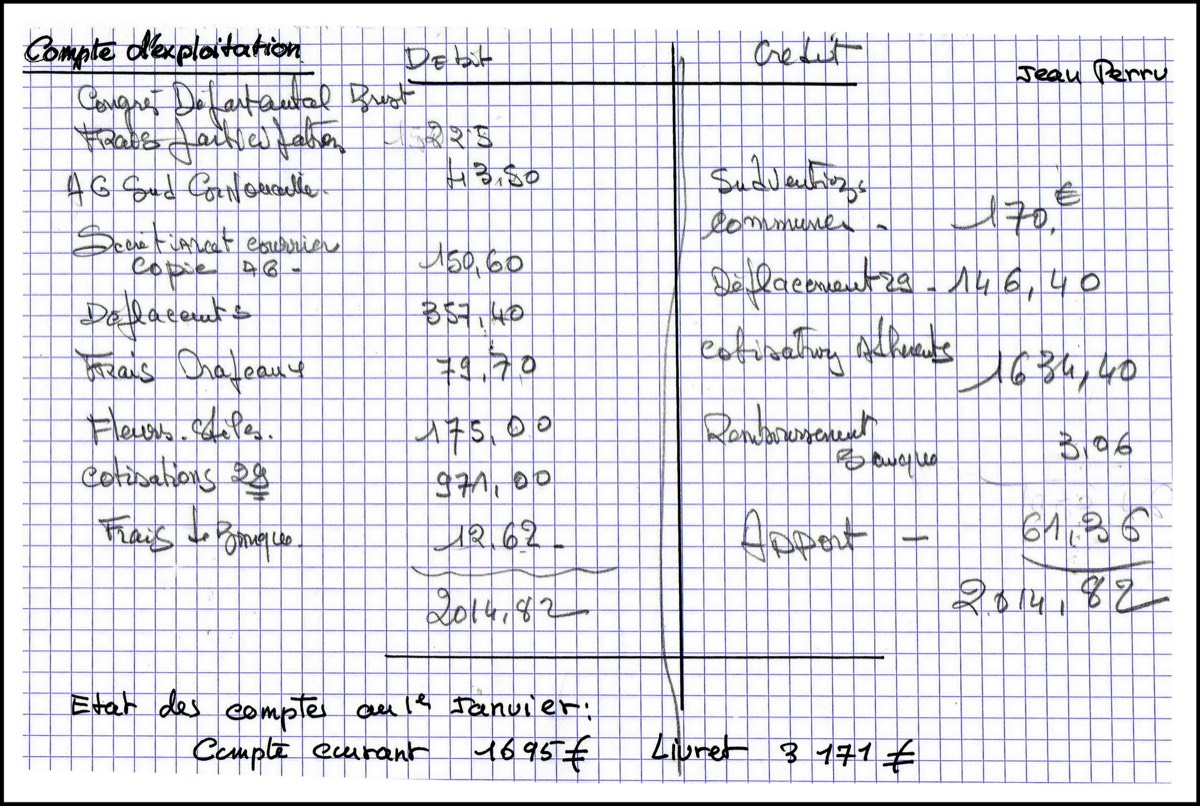 Compte d'exploitation
Débit
Congrès Départantal Brest
Frais participation 225
AG Sud Cornouaille. 43,50
Secrétariat courrier
copie AG - 150,60
Déplacemts 357,40
Frais Drapeaux 79,70
Fleurs. 175,00
Cotisations 29 971,00
Frais de Banque. 12,62 -
2014,82
Crédit
Jean Perru
Subventions
communes - 170,€
Déplacement 29 - 146,40
Cotisations Adhérents 1634,40
Remboursement
Banque 3,06
Apport - 61,36
2.014,82
Etat des comptes au 1er Janvier :
Compte courant 1695 € Livret 3 171 €